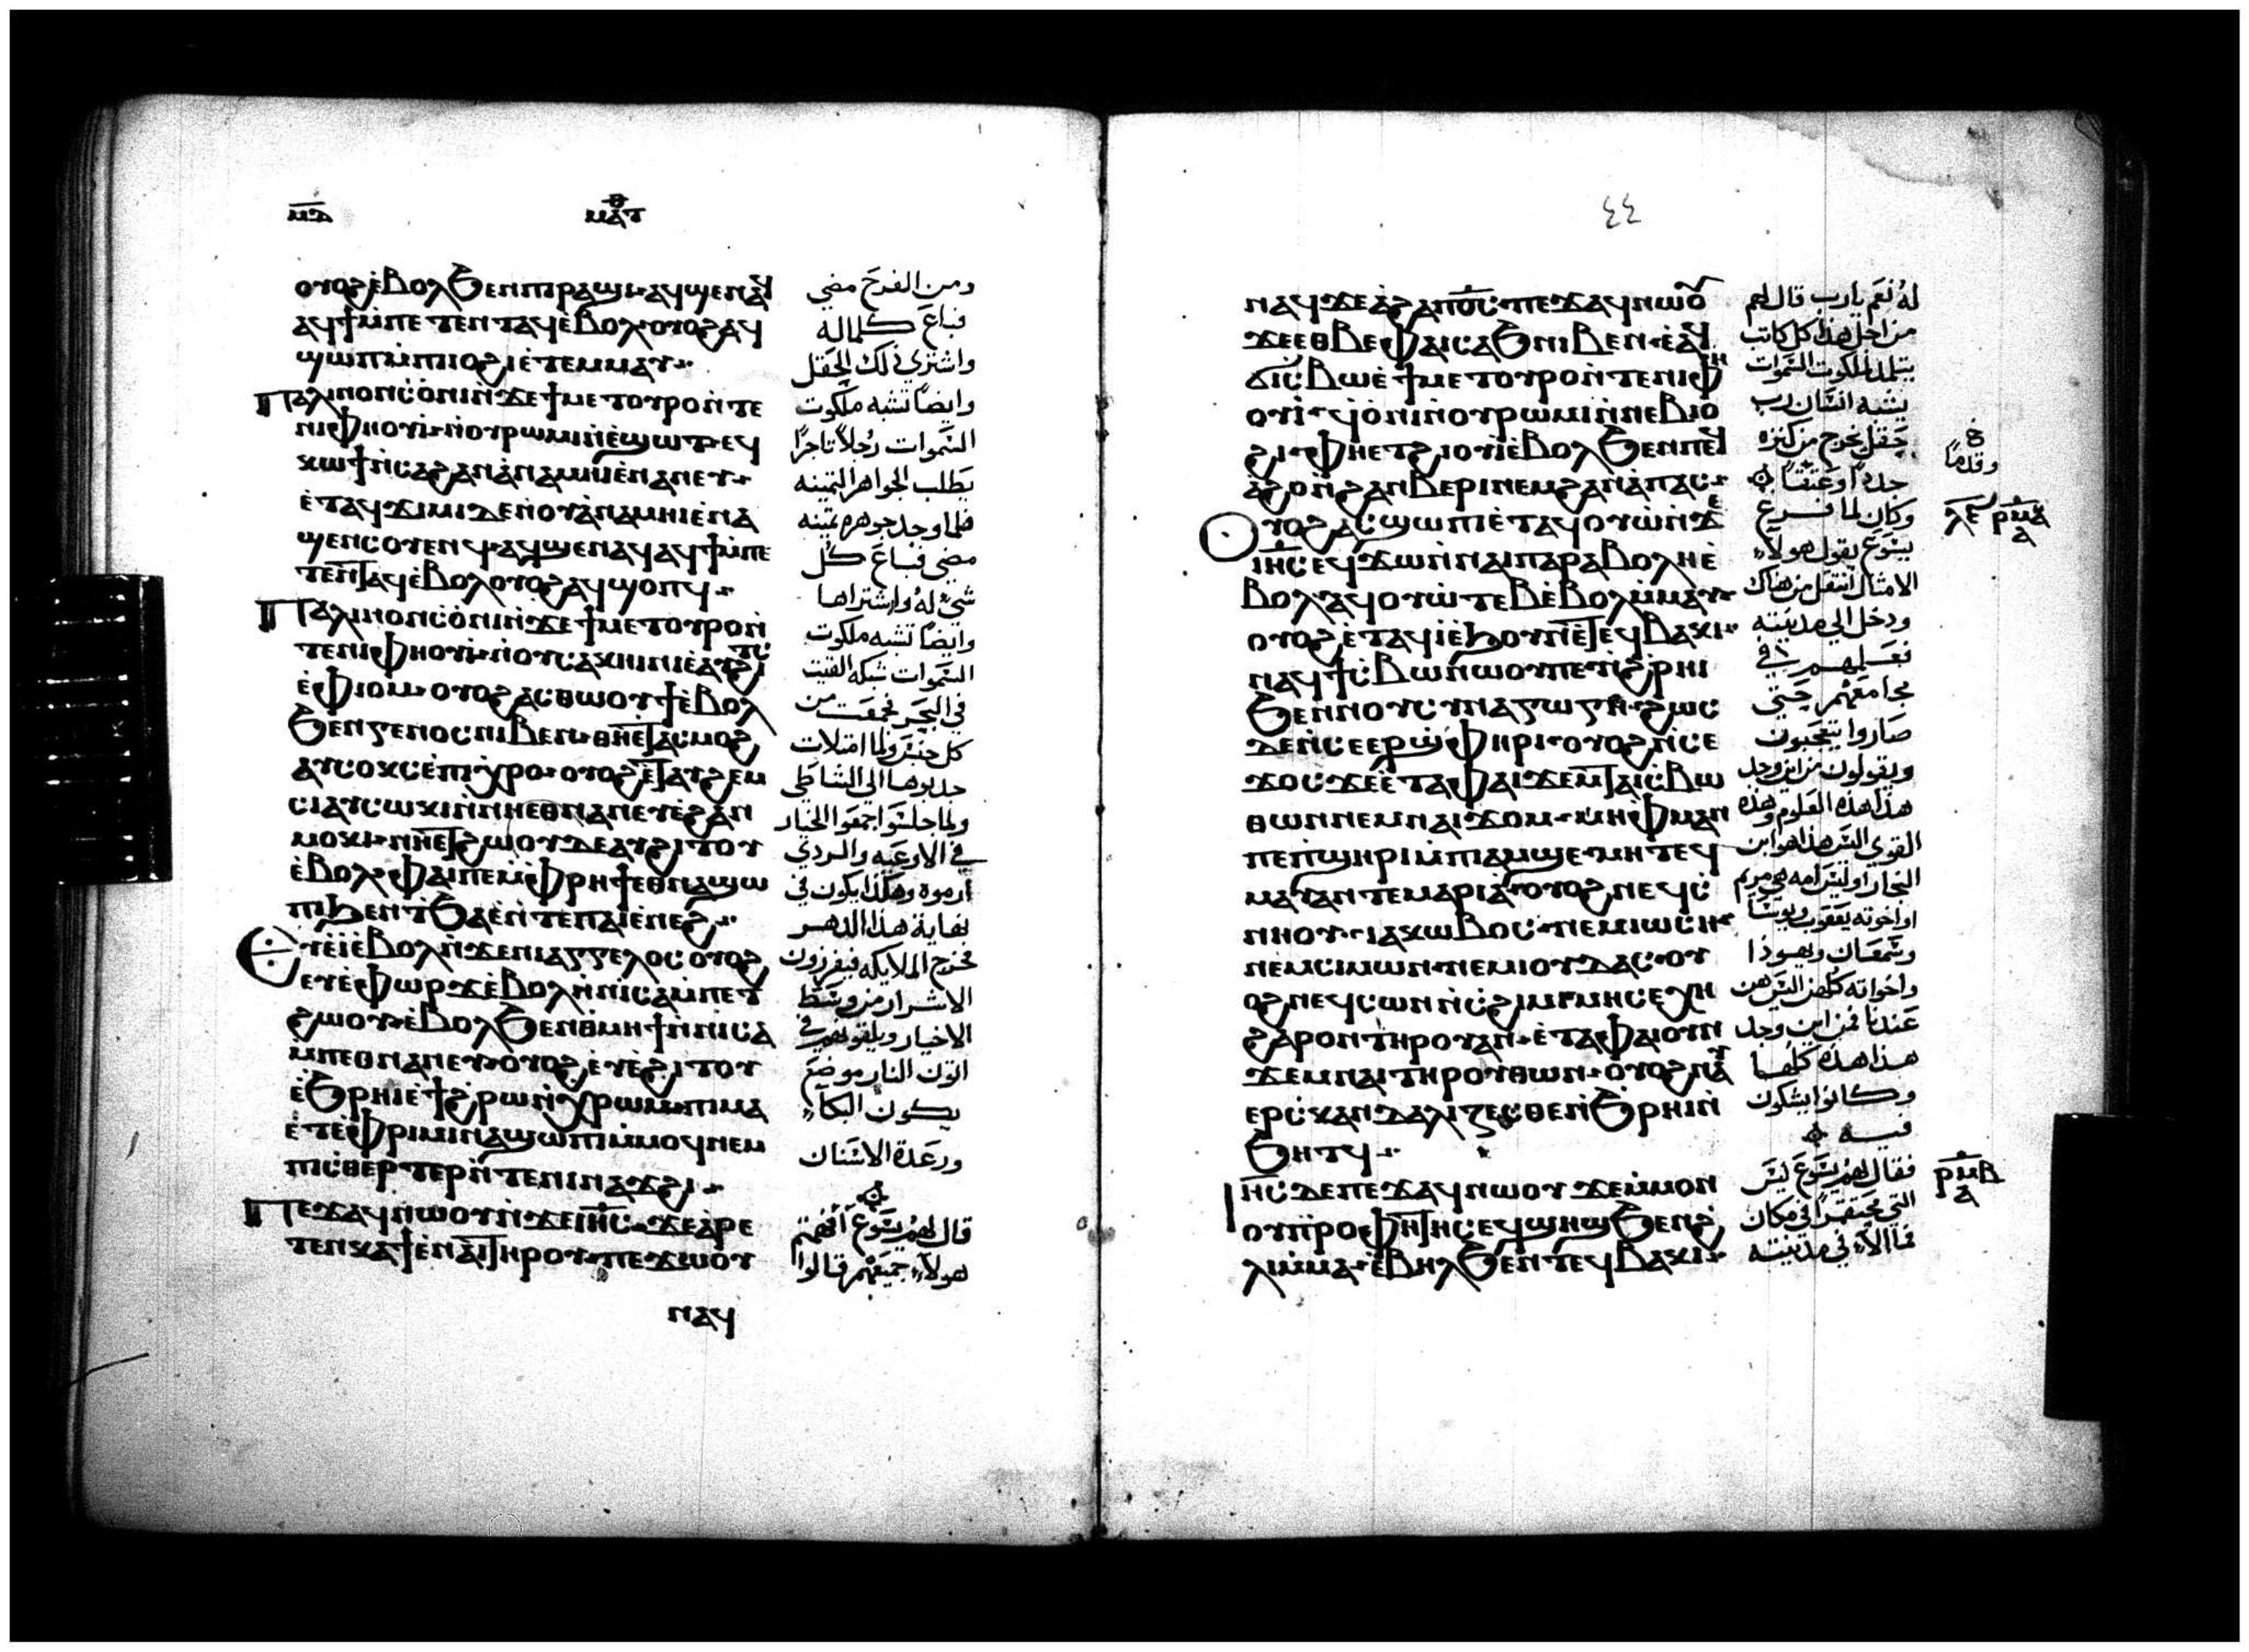 ⲙⲇ
ⲙⲁⲧⲑ
ⲟⲩⲟϩ ⲉ̀ⲃⲟⲗ ϧⲉⲛ ⲡⲓⲣⲁϣⲓ ⲁϥϣⲉⲛⲁϥ
ⲁϥϯ ⲙ̀ⲡⲉⲧⲉⲛⲧⲁϥ ⲉ̀ⲃⲟⲗ ⲟⲩⲟϩ ⲁϥ
ϣⲱⲡ ⲙ̀ⲡⲓⲓⲟϩⲓ ⲉ̀ⲧⲉⲙⲙⲁⲩ
Ⲡⲁⲗⲓⲛ ⲟⲛ ⲥ̀ⲟ̀ⲛⲓ ⲛ̀ϫⲉ ϯⲙⲉⲧⲟⲩⲣⲟ ⲛ̀ⲧⲉ
ⲛⲓⲫⲏⲟⲩⲓ̀ ⲛ̀ⲟⲩⲣⲱⲙⲓ ⲛ̀ⲉ̀ϣⲱⲧ ⲉϥ
ⲕⲱϯ ⲛ̀ⲥⲁ ϩⲁⲛⲁ̀ⲛⲁⲙⲏⲓ ⲉ̀ⲛⲁⲛⲉⲩ
ⲉ̀ⲧⲁϥϫⲓⲙⲓ ⲇⲉ ⲛ̀ⲟⲩⲁ̀ⲛⲁⲙⲏⲓ ⲉ̀ⲛⲁ
ϣⲉⲛⲥⲟⲩⲉⲛϥ ⲁϥϣⲉⲛⲁϥ ⲁϥϯ ⲙ̀ⲡⲉ
ⲧⲉⲛⲧⲁϥ ⲉ̀ⲃⲟⲗ ⲟⲩⲟϩ ⲁϥϣⲟⲡϥ
Ⲡⲁⲗⲓⲛ ⲟⲛ ⲥ̀ⲟ̀ⲛⲓ ⲛ̀ϫⲉ ϯⲙⲉⲧⲟⲩⲣⲟ ⲛ̀
ⲧⲉ ⲛⲓⲫⲏⲟⲩⲓ̀ ⲛ̀ⲟⲩⲥⲁⲅⲏⲛⲏ ⲉ̀ⲁⲩϩⲓⲧⲥ
ⲉ̀ⲫⲓⲟⲙ ⲟⲩⲟϩ ⲁⲥⲑⲱⲟⲩϯ ⲉ̀ⲃⲟⲗ
ϧⲉⲛ ⲅⲉⲛⲟⲥ ⲛⲓⲃⲉⲛ ⲑⲏⲉⲧⲁⲥⲙⲟϩ
ⲁⲩⲥⲟⲕⲥ ⲉ̀ⲡⲓⲭⲣⲟ ⲟⲩⲟϩ ⲉ̀ⲧⲁⲩϩⲉⲙ
ⲥⲓ ⲁⲩⲥⲱⲕⲓ ⲛ̀ⲛⲏⲉⲑⲛⲁⲛⲉⲩ ⲉ̀ϩⲁⲛ
ⲙⲟⲕⲓ ⲛⲏⲉⲧϩⲱⲟⲩ ⲇⲉ ⲁⲩϩⲓⲧⲟⲩ
ⲉ̀ⲃⲟⲗ ⲫⲁⲓ ⲡⲉ ⲙ̀ⲫⲣⲏϯ ⲉⲑⲛⲁϣⲱ
ⲡⲓ ϧⲉⲛ ⲧ̀ϧⲁⲉ̀ ⲛ̀ⲧⲉ ⲡⲁⲓⲉ̀ⲛⲉϩ
Ⲉⲩⲉ̀ⲓ̀ ⲉ̀ⲃⲟⲗ ⲛ̀ϫⲉ ⲛⲓⲁⲅⲅⲉⲗⲟⲥ ⲟⲩⲟϩ
ⲉⲩⲉ̀ⲫⲱⲣϫ ⲉ̀ⲃⲟⲗ ⲛ̀ⲛⲓⲥⲁⲙ̀ⲡⲉⲧ
ϩⲱⲟⲩ ⲉ̀ⲃⲟⲗ ϧⲉⲛ ⲑⲙⲏϯ ⲛ̀ⲛⲓⲥⲁ
ⲙ̀ⲡⲉⲑⲛⲁⲛⲉⲩ ⲟⲩⲟϩ ⲉⲩⲉ̀ϩⲓⲧⲟⲩ
ⲉ̀ϧⲣⲏⲓ ⲉ̀ϯϩⲣⲱ ⲛ̀ⲭⲣⲱⲙ ⲡⲓⲙⲁ
ⲉ̀ⲧⲉ ⲫⲣⲓⲙⲓ ⲛⲁϣⲱⲡⲓ ⲙ̀ⲙⲟϥ ⲛⲉⲙ
ⲡⲓⲥⲑⲉⲣⲧⲉⲣ ⲛ̀ⲧⲉ ⲛⲓⲛⲁϫϩⲓ
Ⲡⲉϫⲁϥ ⲛⲱⲟⲩ ⲛ̀ϫⲉ ⲓⲏⲥ ϫⲉ ⲁ̀ⲣⲉ
ⲧⲉⲛⲕⲁϯ ⲉ̀ⲛⲁⲓ ⲧⲏⲣⲟⲩ ⲡⲉϫⲱⲟⲩ
ⲛⲁϥ
ومن الفرح مضي
فباع كلماله
واشتري ذلك الحقل
وايضًا تشبه ملكوت
السموات رجلاً تاجرًا
يطلب الجواهر الثمينه
فلما وجد جوهره ثمينه
مضي فباع كل
شي له واشتراها
وايضًا تشبه ملكوت
السموات شبكه القيت
في البحر فجمعت من
كل جنس ولما امتلات
جدبوها الى الشاطي
ولما جلسوا جمعوا الخيار
في الاوعيه والردي
ارموه وهكذا يكون في
نهاية هذا الدهر
تخرج الملايكه فيفرزون
الاشرار من وسط
الاخيار ويلقوهم في
اتون النار موضع
يكون البكاء
ورعدة الاسنان
قال لهم يسوع افهمتم
هولاء جميعهم قالوا
٤٤
ⲛⲁϥ ϫⲉ ⲁ̀ϩⲁ ⲡϭⲟⲓⲥ ⲡⲉϫⲁϥ ⲛⲱⲟⲩ
ϫⲉ ⲉⲑⲃⲉ ⲫⲁⲓ ⲥⲁϧ ⲛⲓⲃⲉⲛ ⲉ̀ⲁϥ
ϭⲓⲥⲃⲱ ⲉ̀ϯⲙⲉⲧⲟⲩⲣⲟ ⲛ̀ⲧⲉ ⲛⲓⲫⲏ
ⲟⲩⲓ̀ ϥⲟ̀ⲛⲓ ⲛ̀ⲟⲩⲣⲱⲙⲓ ⲛ̀ⲛⲉⲃⲓⲟ
ϩⲓ ⲫⲏⲉⲧϩⲓⲟⲩⲓ̀ ⲉ̀ⲃⲟⲗ ϧⲉⲛ ⲡⲉϥ
ⲁ̀ϩⲟ ⲛ̀ϩⲁⲛⲃⲉⲣⲓ ⲛⲉⲙ ϩⲁⲛⲁ̀ⲡⲁⲥ
Ⲟⲩⲟϩ ⲁⲥϣⲱⲡⲓ ⲉ̀ⲧⲁϥⲟⲩⲱ ⲛ̀ϫⲉ
ⲓⲏⲥ ⲉϥϫⲱ ⲛ̀ⲛⲁⲓⲡⲁⲣⲁⲃⲟⲗⲏ ⲉ̀
ⲃⲟⲗ ⲁϥⲟⲩⲱ̀ⲧⲉⲃ ⲉ̀ⲃⲟⲗ ⲙ̀ⲙⲁⲩ
ⲟⲩⲟϩ ⲉ̀ⲧⲁϥⲓ̀ ⲉ̀ϧⲟⲩⲛ ⲉ̀ⲧⲉϥⲃⲁⲕⲓ
ⲛⲁϥϯⲥⲃⲱ ⲛⲱⲟⲩ ⲡⲉ ⲛ̀ϩⲣⲏⲓ
ϧⲉⲛ ⲛⲟⲩⲥⲩⲛⲁⲅⲱⲅⲏ ϩⲱⲥ
ⲇⲉ ⲛ̀ⲥⲉⲉⲣϣ̀ⲫⲏⲣⲓ ⲟⲩⲟϩ ⲛ̀ⲥⲉ
ϫⲟⲥ ϫⲉ ⲉ̀ⲧⲁ ⲫⲁⲓ ϫⲉⲙ ⲧⲁⲓⲥⲃⲱ
ⲑⲱⲛ ⲛⲉⲙ ⲛⲁⲓϫⲟⲙ ⲙⲏ ⲫⲁⲓ ⲁⲛ
ⲡⲉ ⲡ̀ϣⲏⲣⲓ ⲙ̀ⲡⲓⲁⲙϣⲉ ⲙⲏ ⲧⲉϥ
ⲙⲁⲩ ⲁⲛ ⲧⲉ ⲙⲁⲣⲓⲁ ⲟⲩⲟϩ ⲛⲉϥⲥ̀
ⲛⲏⲟⲩ ⲓⲁⲕⲱⲃⲟⲥ ⲛⲉⲙ ⲓⲱⲥⲏ
ⲛⲉⲙ ⲥⲓⲙⲱⲛ ⲛⲉⲙ ⲓⲟⲩⲇⲁⲥ ⲟⲩ
ⲟϩ ⲛⲉϥⲥⲱⲛⲓ ⲛ̀ⲥ̀ϩⲓⲙⲓ ⲙⲏ ⲥⲉⲭⲏ
ϩⲁⲣⲟⲛ ⲧⲏⲣⲟⲩ ⲁⲛ ⲉ̀ⲧⲁ ⲫⲁⲓ ⲟⲩⲛ
ϫⲉⲙ ⲛⲁⲓ ⲧⲏⲣⲟⲩ ⲑⲱⲛ ⲟⲩⲟϩ ⲛⲁⲩ
ⲉⲣⲥⲕⲁⲛⲇⲁⲗⲓⲍⲉⲥⲑⲉ ⲛ̀ϧⲣⲏⲓ ⲛ̀
ϧⲏⲧϥ
Ⲓⲏⲥ ⲇⲉ ⲡⲉϫⲁϥ ⲛⲱⲟⲩ ϫⲉ ⲙ̀ⲙⲟⲛ
ⲟⲩⲡ̀ⲣⲟⲫⲏⲧⲏⲥ ⲉϥϣⲏϣ ϧⲉⲛ ϩ̀
ⲗⲓ ⲙ̀ⲙⲁ ⲉ̀ⲃⲏⲗ ϧⲉⲛ ⲧⲉϥⲃⲁⲕⲓ
له نعم يارب قال لهم
من اجل هذا كل كاتب
يتلمذ لملكوت السموات
يشبه انسان رب
حقل يخرج من كنزه
جددًا وعتقًا
وكان لما فرغ
يسوع يقول هولاء
الامثال انتقل من هناك
ودخل الي مدينته
فعلمهم في
مجامعهم حتي
صاروا يتعجبون
ويقولون من اين وجد
هذا هذه العلوم وهذه
القوي اليس هذا هو ابن
النجار اوليس امه هي مريم
واخوته يعقوب ويوسا
وسمعان ويهوذا
واخواته كلهن اليس هن
عندنا فمن اين وجد
هذا هذه كلها
وكانوا يشكون
فيه
فقال لهم يسوع ليس
النبي محتقرًا في مكان
ما الا في مدينته
وقدما
ⲗⲉ ⲣⲙⲁ
ⲁ
ⲣⲙⲃ
ⲁ